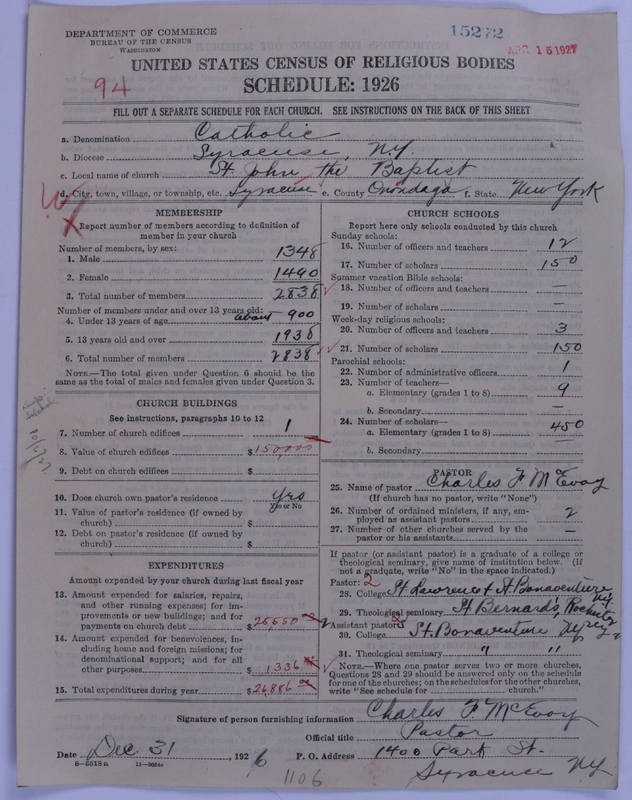 DEPARTMENT OF COMMERCE
BUREAU OF THE CENSUS
WASHINGTON
15272
APR 15 1927
UNITED STATES CENSUS OF RELIGIOUS BODIES
SCHEDULE: 1926
94
FILL OUT A SEPARATE SCHEDULE FOR EACH CHURCH. SEE INSTRUCTIONS ON THE BACK OF THIS SHEET
a. Denomination Catholic
b. Diocese Syracuse, N.Y.
c. Local name of church St. John the Baptist
d. City, town, village, or township, etc. Syracuse e. County Onondaga f. State New York
MEMBERSHIP
Report number of members according to definition of member in your church
Number of members, by sex:
1. Male 1348
2. Female 1490
3. Total number of members 2838
Number of members under and over 13 years old:
4. Under 13 years of age about 900
5. 13 years old and over 1938
6. Total number of members 2838
NOTE.—The total given under Question 6 should be the
same as the total of males and females given under Question 3.
CHURCH BUILDINGS
See instructions, paragraphs 10 to 12
7. Number of church edifices 1
8. Value of church edifices $150,000
9. Debt on church edifices $
10. Does church own pastor's residence Yes
Yes or No
11. Value of pastor's residence (if owned by
church) $
12. Debt on pastor's residence (if owned by
church) $
EXPENDITURES
Amount expended by your church during last fiscal year
13. Amount expended for salaries, repairs,
and other running expenses; for im-
provements or new buildings; and for
payments on church debt $25,550
14. Amount expended for benevolences, in-
cluding home and foreign missions; for
denominational support; and for all
other purposes $1336
15. Total expenditures during year $26,886
CHURCH SCHOOLS
Report here only schools conducted by this church
Sunday schools:
16. Number of officers and teachers 12
17. Number of scholars 150
Summer vacation Bible schools:
18. Number of officers and teachers —
19. Number of scholars —
Week-day religious schools:
20. Number of officers and teachers 3
21. Number of scholars 150
Parochial schools:
22. Number of administrative officers 1
23. Number of teachers—
a. Elementary (grades 1 to 8) 9
b. Secondary —
24. Number of scholars—
a. Elementary (grades 1 to 8) 450
b. Secondary —
PASTOR
25. Name of pastor Charles F McEvoy
(If church has no pastor, write "None")
26. Number of ordained ministers, if any, em-
ployed as assistant pastors 2
27. Number of other churches served by the
pastor or his assistants —
If pastor (or assistant pastor) is a graduate of a college or
theological seminary, give name of institution below. (If
not a graduate, write "No" in the space indicated.)
Pastor: 2
28. College St Lawrence & St Bonaventure NY
29. Theological seminary St Bernard's, Rochester NY
Assistant pastor: 2
30. College St. Bonaventure NY
31. Theological seminary " "
NOTE.—Where one pastor serves two or more churches,
Questions 28 and 29 should be answered only on the schedule
for one of the churches; on the schedules for the other churches,
write "See schedule for church."
Signature of person furnishing information Charles F. McEvoy
Official title Pastor
Date Dec 31, 1926 P. O. Address 1400 Park St.
8-5518a 11-9034
Syracuse NY
1106